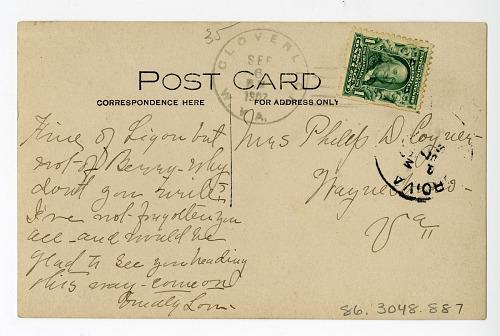 35
CLOVERL
SEP
6
1907
W. VA.
POST CARD
CORRESPONDENCE HERE
FOR ADDRESS ONLY
Fine of Ligon but
not of Benny - Why
don't you write?
I've not forgotten you
all - and would be
glad to see you heading
this way - come on
Mrs Philip D. Coyner
Waynesboro -
Va
RO, VA
SEP
86.3048.887